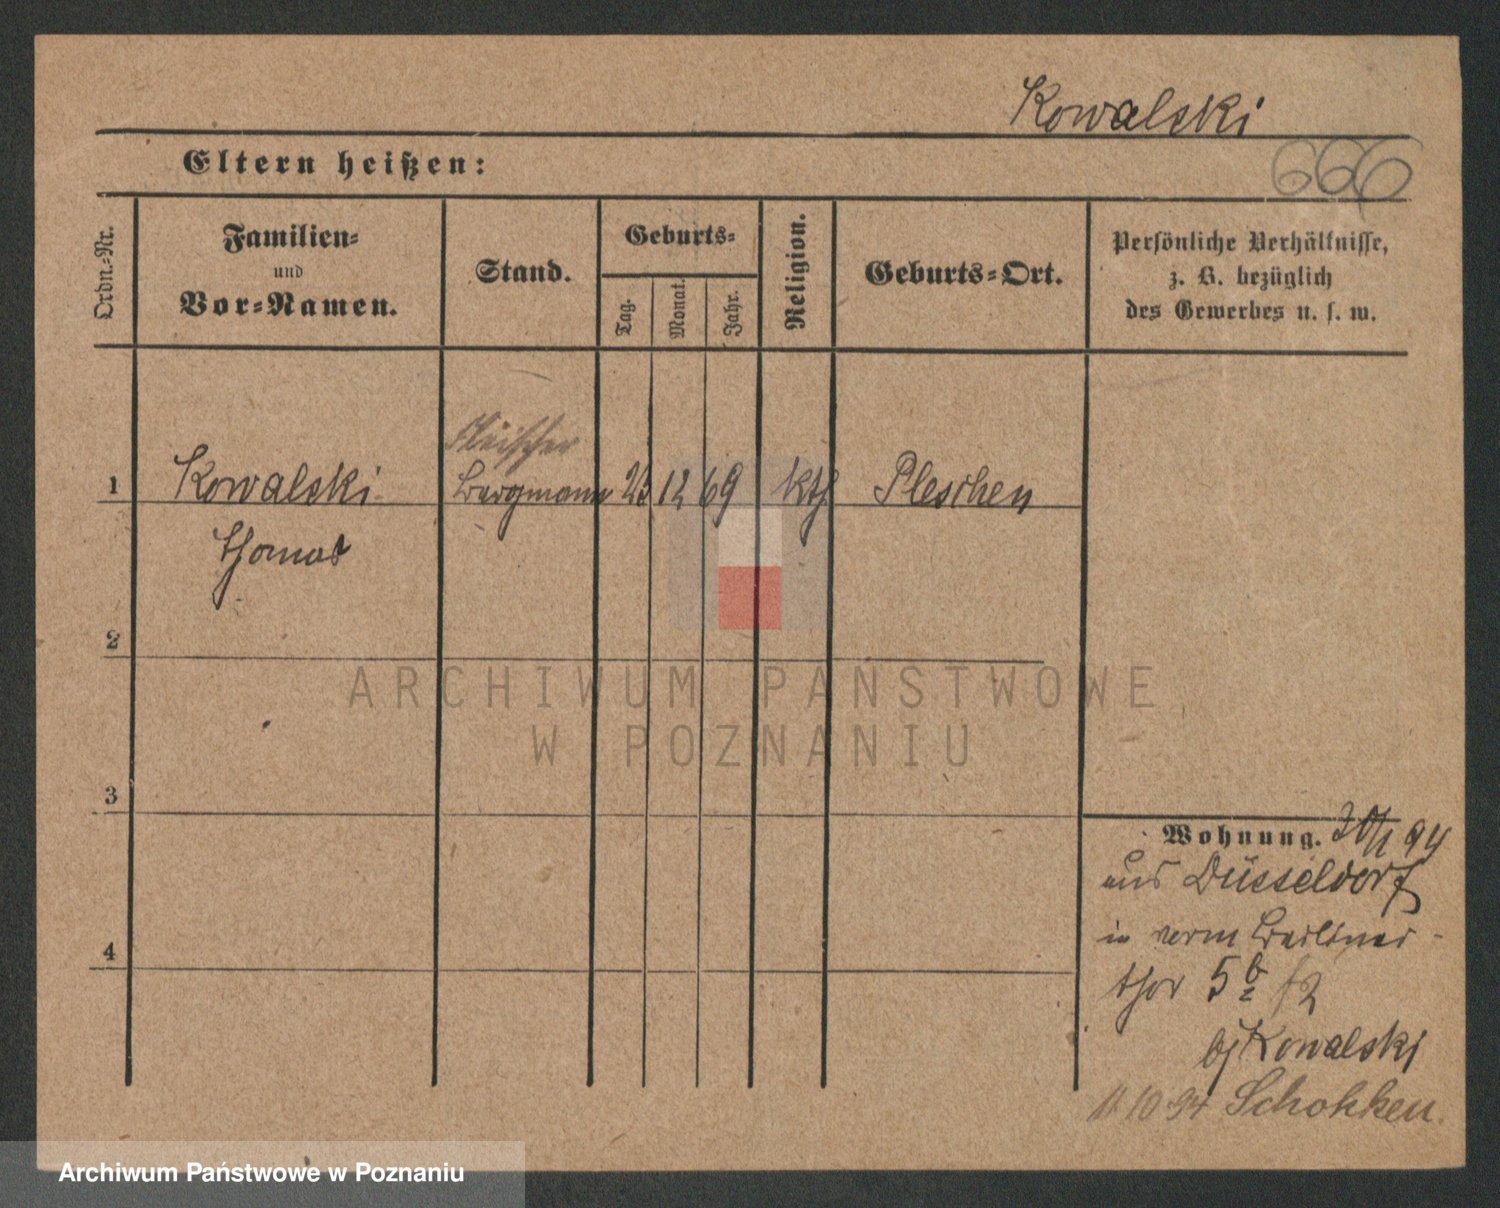 Kowalski
666
Eltern heißen:
Ordn.-Nr.
Familien-
und
Vor-Namen.
Stand.
Geburts-
Tag.
Monat.
Jahr.
Religion.
Geburts-Ort.
Persönliche Verhältnisse,
z. B. bezüglich
des Gewerbes u. s. w.
Fleischer
1 Kowalski Bergmann 12 69 kth Pleschen
Thomas
2
3
4
ARCHIWUM PAŃSTWOWE
W POZNANIU
Wohnung. 94
aus Düsseldorf
in Berliner-
thor 5
bj Kowalski
11 10 94 Schokken.
Archiwum Państwowe w Poznaniu